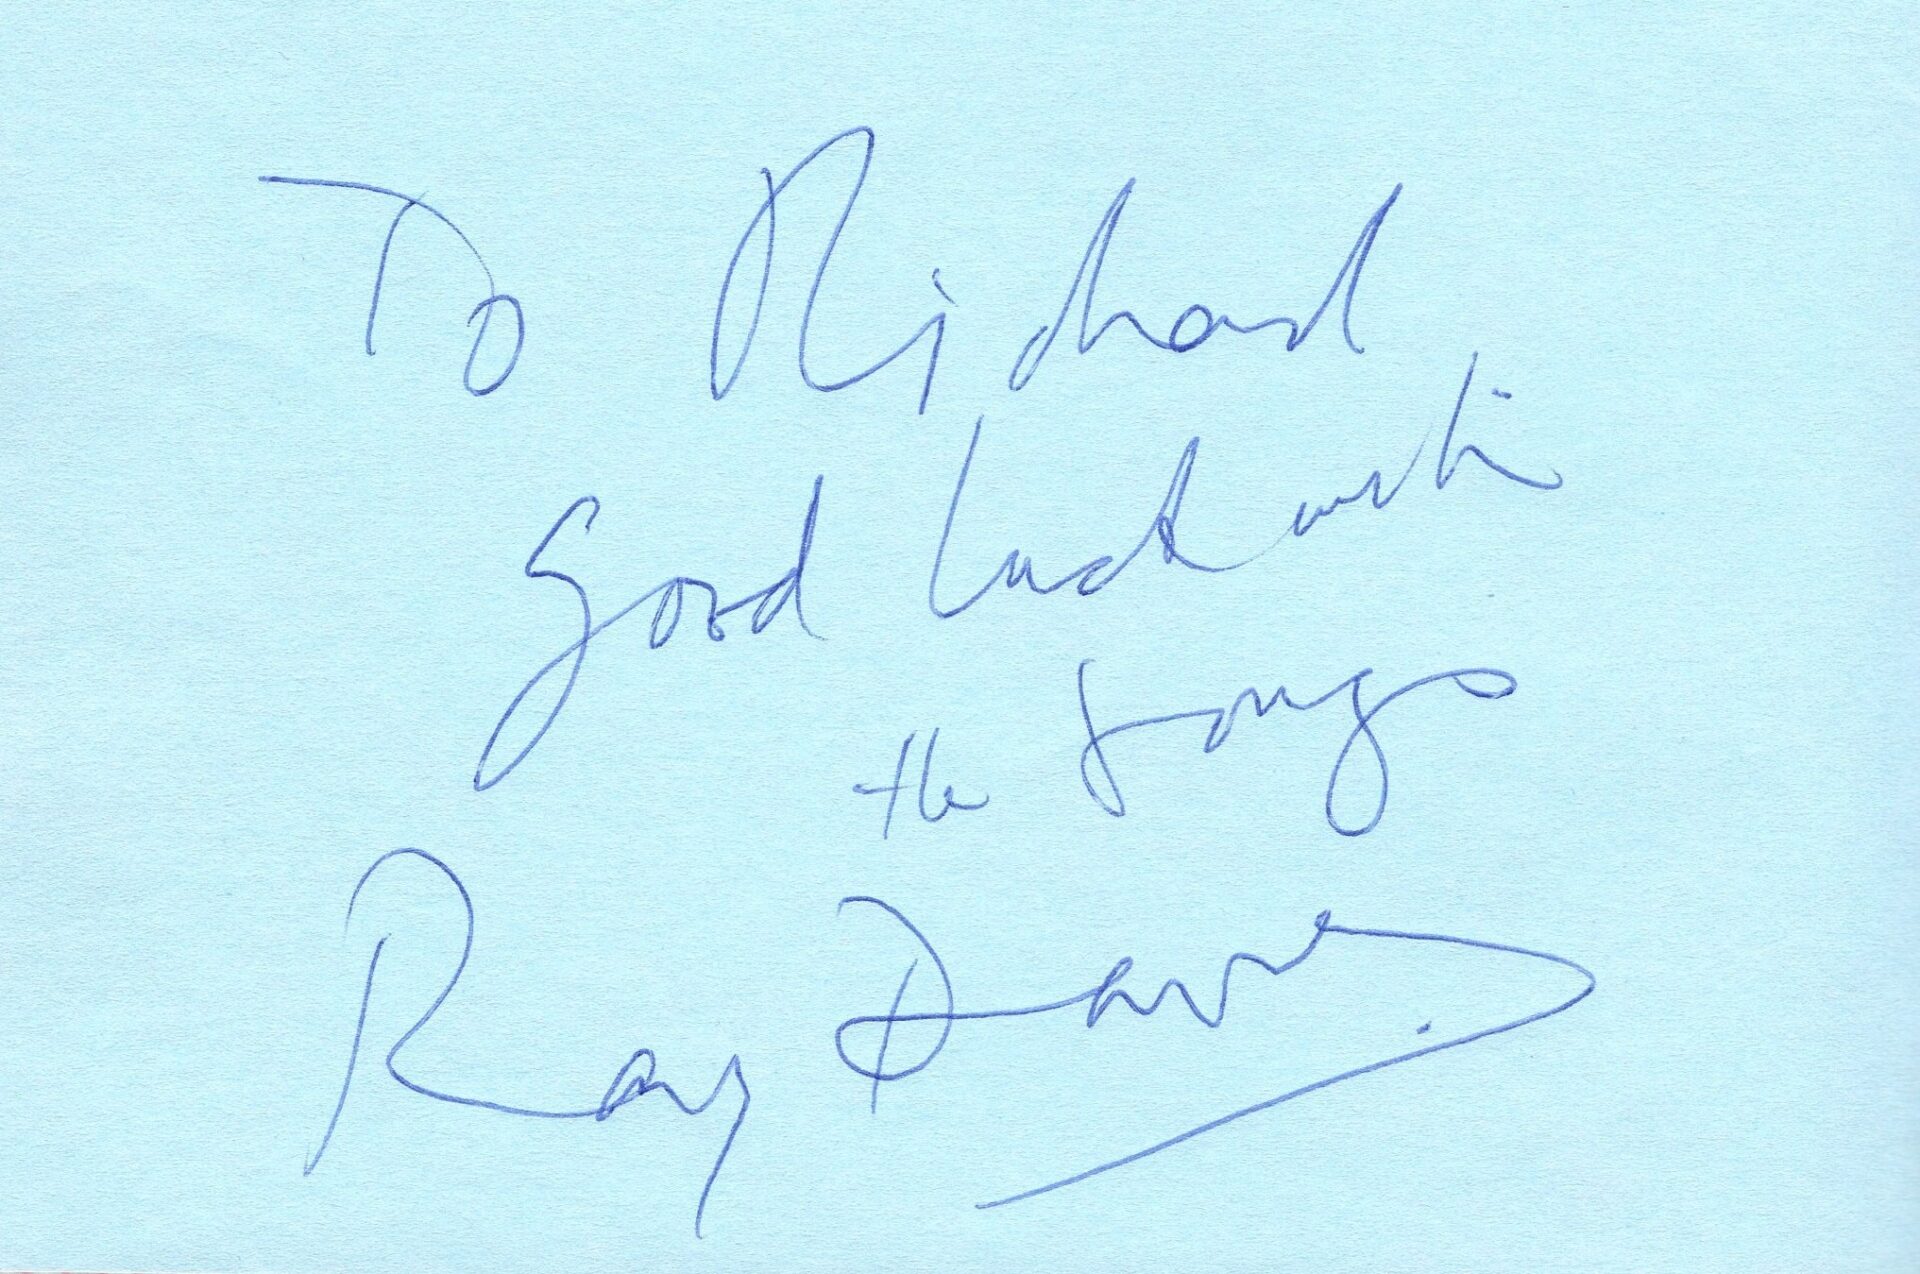 To Richard
Good luck with
the songs
Ray Davies